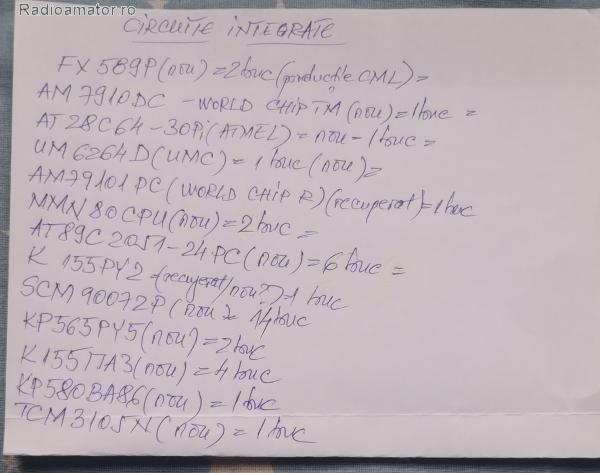 Radioamator.ro
CIRCUITE INTEGRATE
FX589P(nou)=2buc(producție CML)=
AM7910DC -WORLD CHIP TM (nou)=1buc =
AT28C64-30Pi(ATMEL)=nou-1buc=
UM6264D(UMC)=1buc(nou)=
AM79101PC(WORLD CHIP R)(recuperat)=1buc
MMN80CPU(nou)=2buc=
AT89C2051-24PC(nou)=6buc=
K155РУ2-(recuperat/nou?)-1 buc
SCM90072P(nou)= 14buc
КР565РУ5(nou)=2buc
К155ПА3(nou)=4buc
КР580ВА86(nou)=1buc
TCM3105N(nou)=1buc